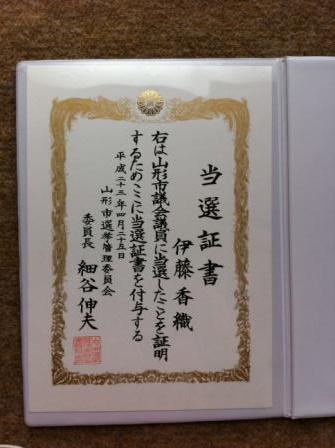 当選証書
伊藤香織
右は山形市議会議員に当選したことを証明
するためここに当選証書を付与する
平成二十三年四月二十五日
山形市選挙管理委員会
委員長 細谷伸夫